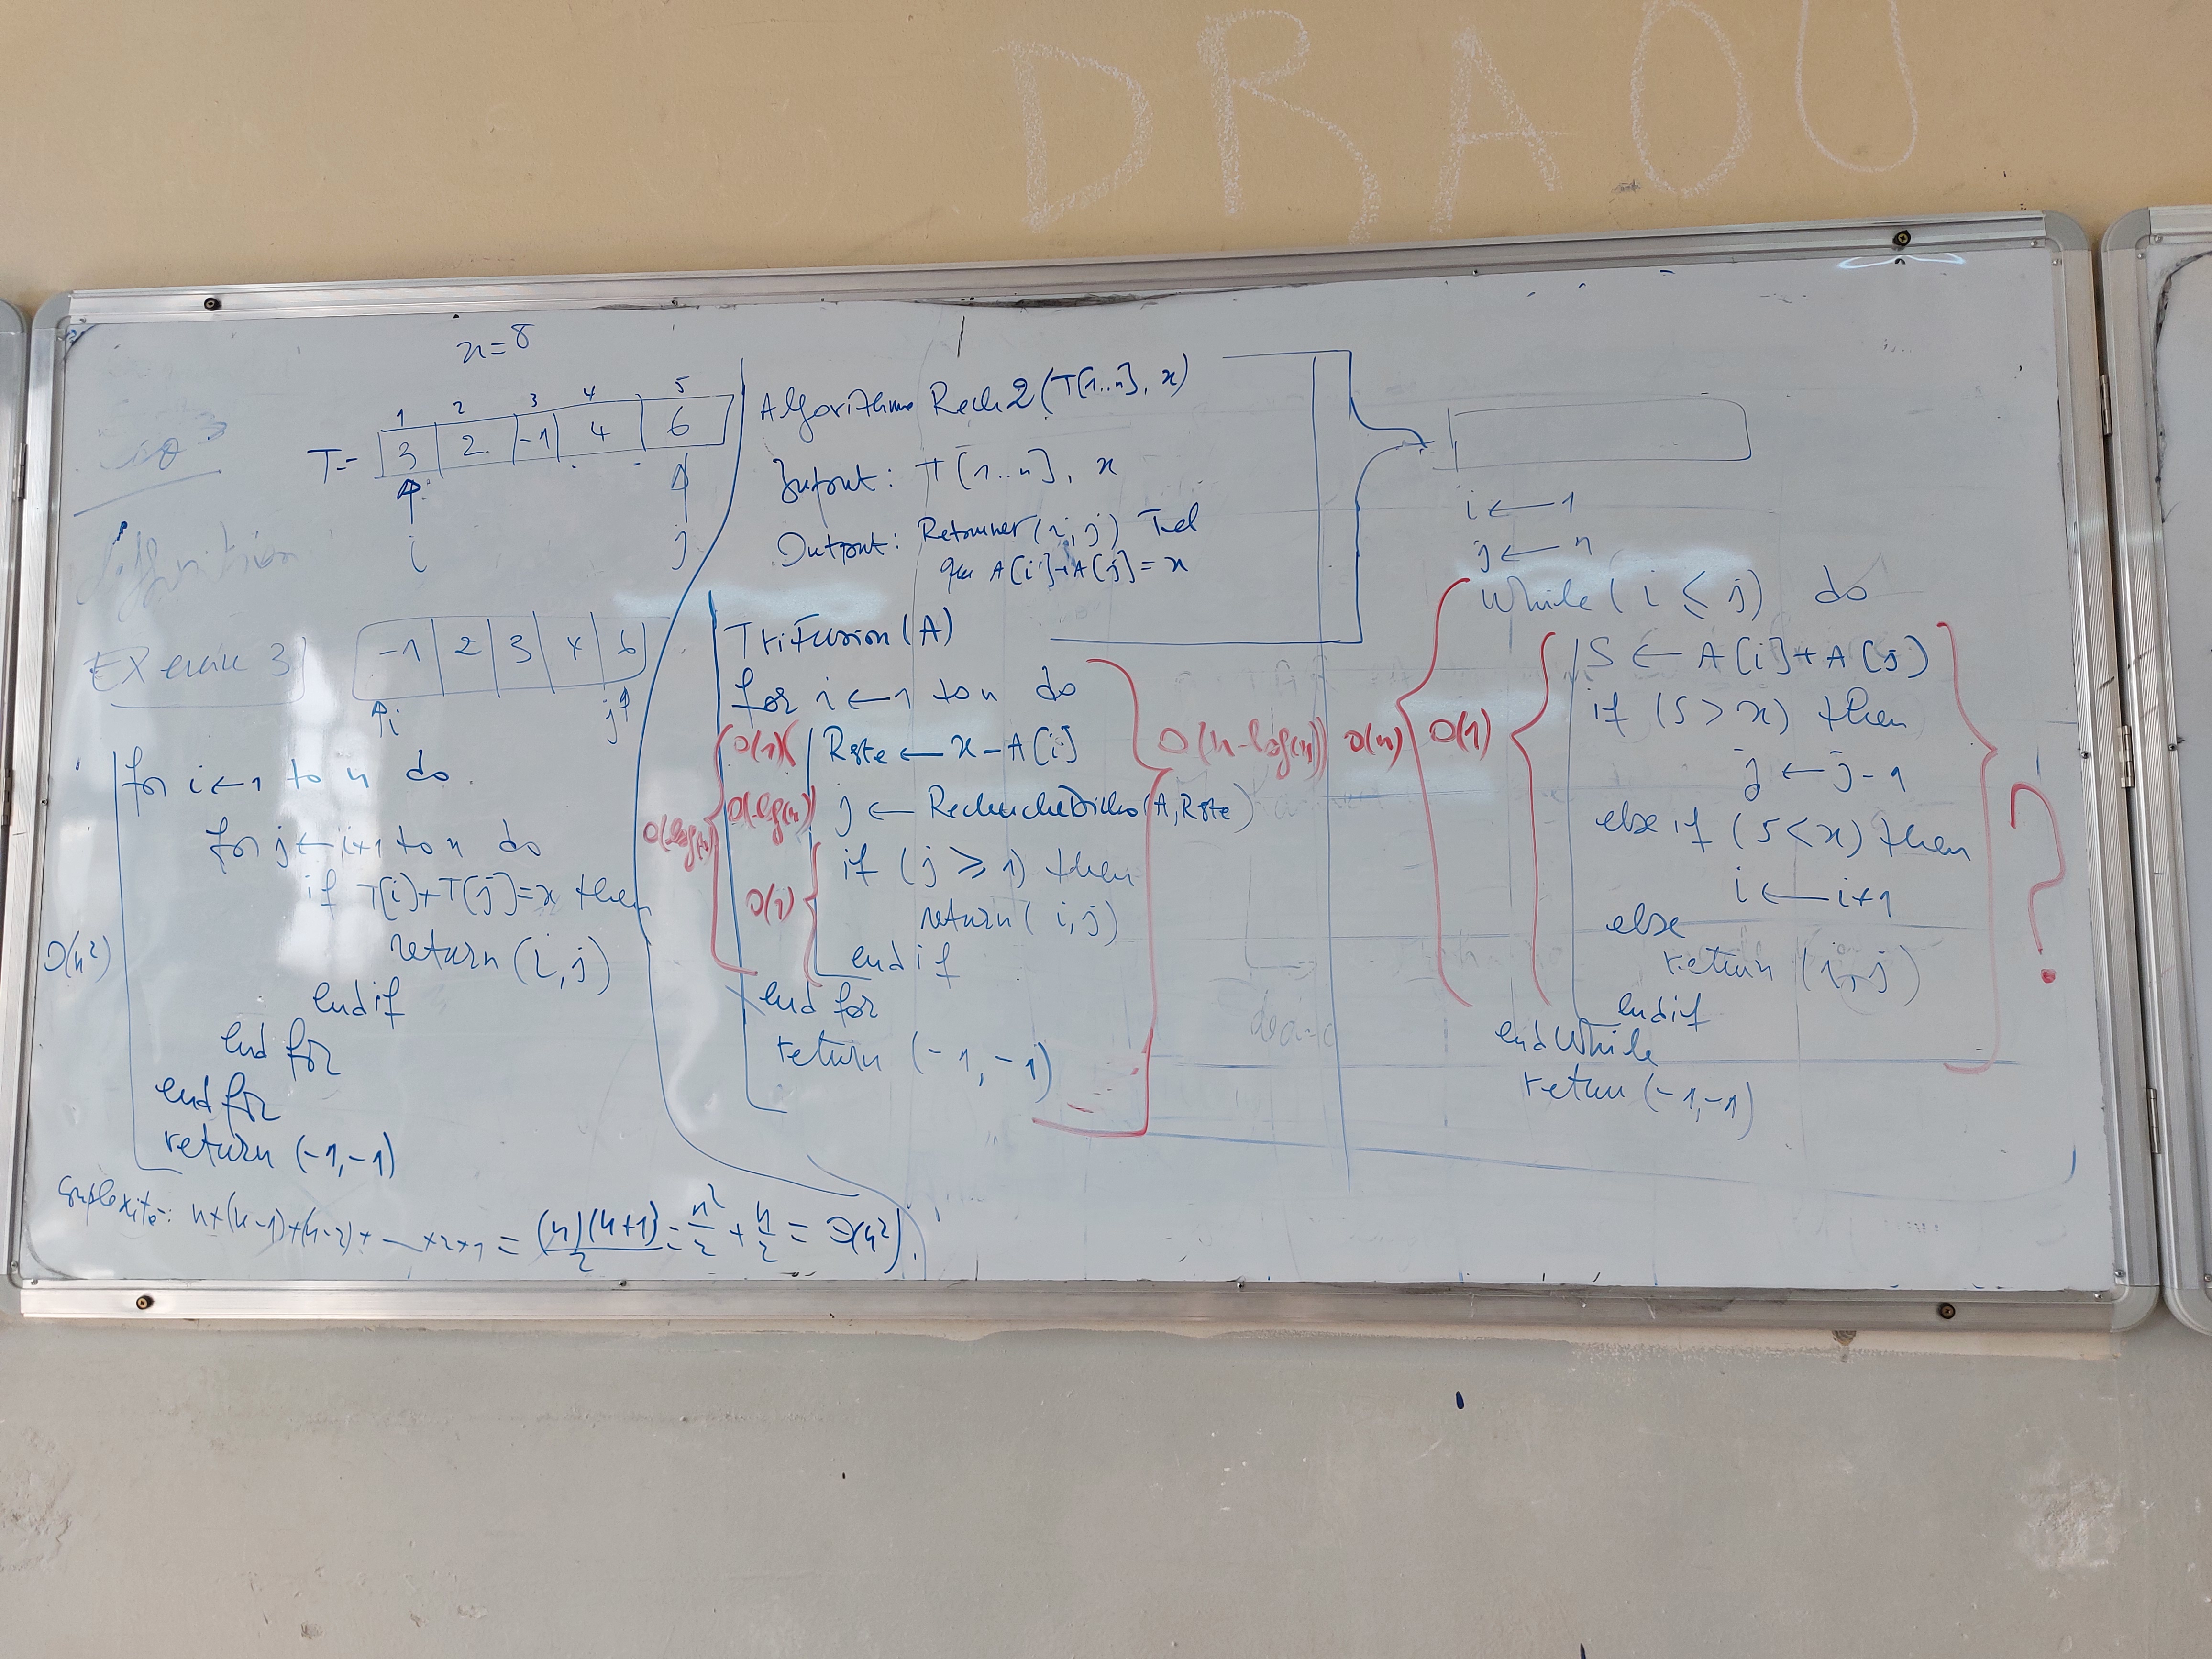 DRAOU
x=8
1 2 3 4 5
T= 3 2 -1 4 6
i j
Exercice 3
-1 2 3 4 6
i j
for i ← 1 to n do
for j ← i+1 to n do
if T[i]+T[j]=x then
return (i,j)
O(n²)
endif
end for
end for
return (-1,-1)
Complexité: n+(n-1)+(n-2)+ — +2+1 = (n)(n+1)/2 = n²/2 + n/2 = O(n²).
Algorithme Rech2(T[1..n], x)
Input: T[1...n], x
Output: Retourner (i,j) Tel
que A[i]+A[j]=x
TriFusion(A)
for i ← 1 to n do
O(1) Rste ← x-A[i]
O(log(n)) j ← RechercheDicho(A,Rste)
O(log(n))
if (j ≥ 1) then
O(1) return (i,j)
endif
end for
return (-1,-1)
O(n-log(n))
i ← 1
j ← n
While (i ≤ j) do
S ← A[i]+A[j]
if (S > x) then
O(n) O(1)
j ← j-1
else if (S < x) then
i ← i+1
else
return (i,j)
endif
endWhile
return (-1,-1)
?